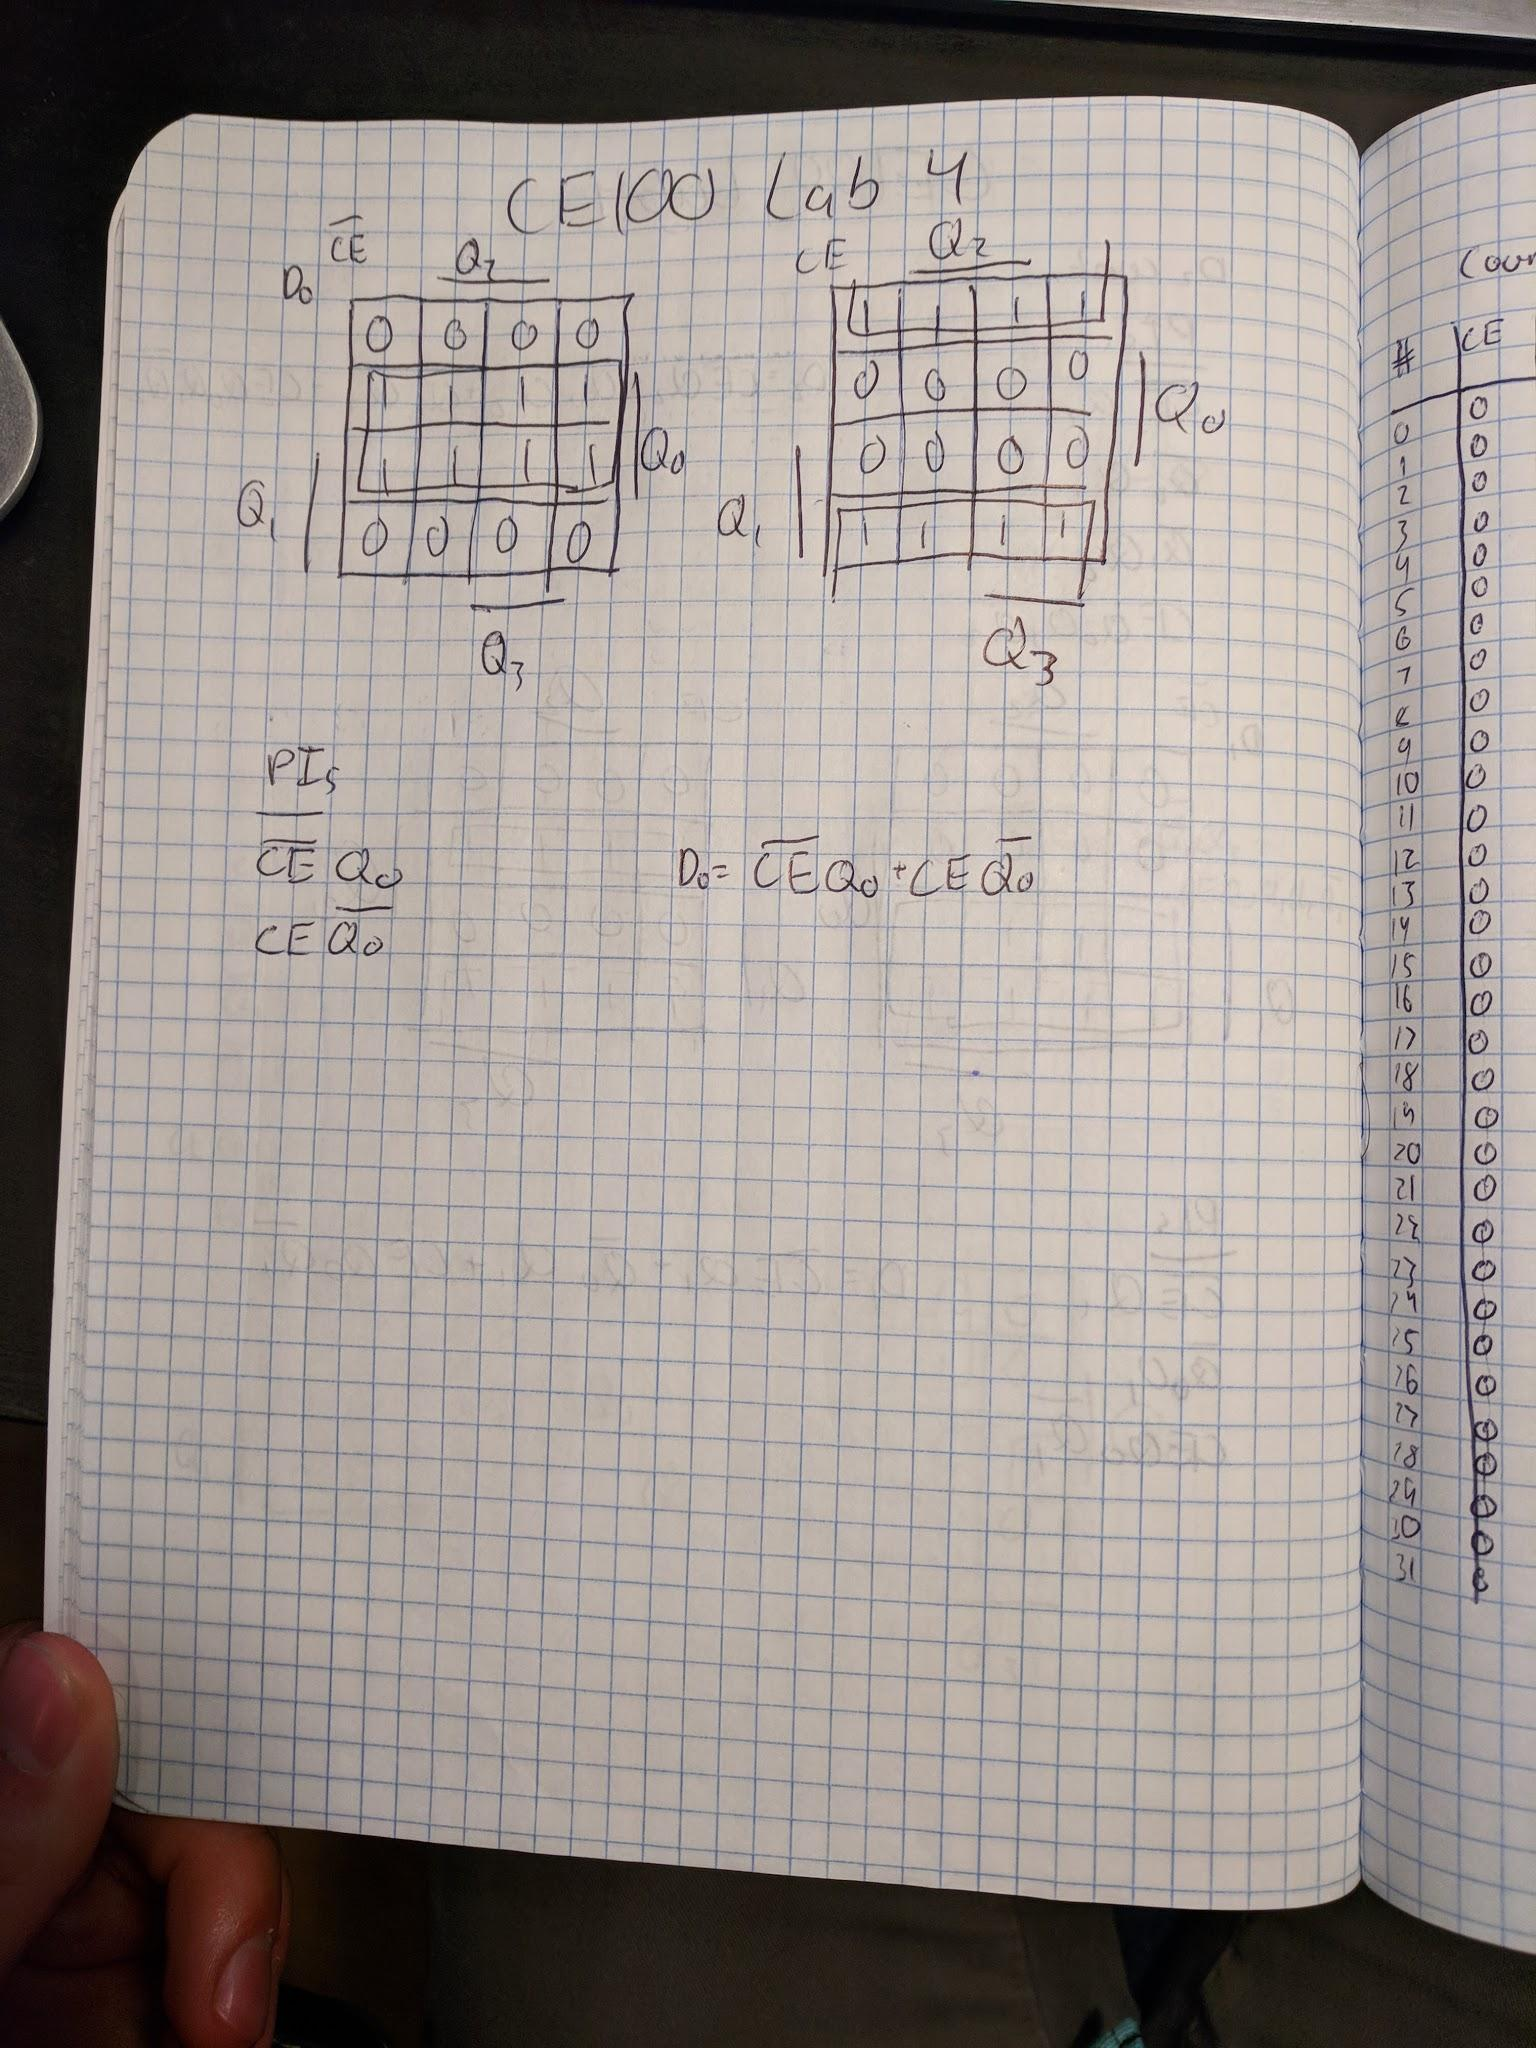 CE100 Lab 4
D₀ C̅E̅ Q₂
0 0 0 0
1 1 1 1
1 1 1 1 Q₀
Q₁
0 0 0 0
Q₃
CE Q₂
1 1 1 1
0 0 0 0
Q₀
0 0 0 0
Q₁ 1 1 1 1
Q₃
PIs
C̅E̅ Q₀
CE Q̅₀
D₀ = C̅E̅ Q₀ + CE Q̅₀
# CE
0 0
1 0
2 0
3 0
4 0
5 0
6 0
7 0
8 0
9 0
10 0
11 0
12 0
13 0
14 0
15 0
16 0
17 0
18 0
19 0
20 0
21 0
22 0
23 0
24 0
25 0
26 0
27 0
28 0
29 0
30 0
31